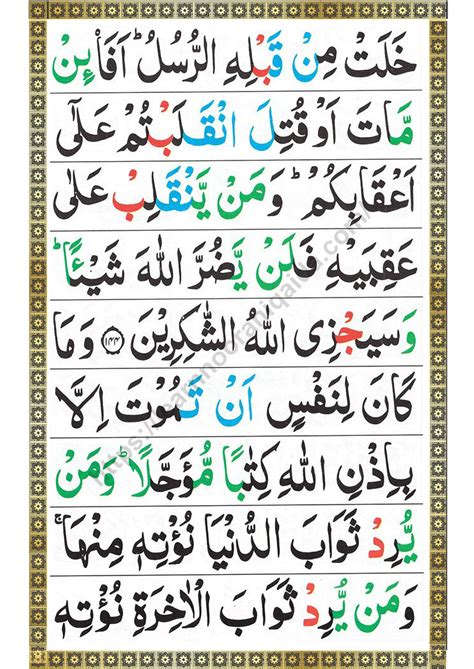 خَلَتْ مِنْ قَبْلِهِ الرُّسُلُ ؕ اَفَا۠ئِنْ
مَّاتَ اَوْ قُتِلَ انْقَلَبْتُمْ عَلٰۤى
اَعْقَابِكُمْ ؕ وَمَنْ يَّنْقَلِبْ عَلٰى
عَقِبَيْهِ فَلَنْ يَّضُرَّ اللّٰهَ شَيْـًٔا ؕ
وَسَيَجْزِى اللّٰهُ الشّٰكِرِيْنَ ۝۱۴۴ وَمَا
كَانَ لِنَفْسٍ اَنْ تَمُوْتَ اِلَّا
بِاِذْنِ اللّٰهِ كِتٰبًا مُّؤَجَّلًا ؕ وَمَنْ
يُّرِدْ ثَوَابَ الدُّنْيَا نُؤْتِهٖ مِنْهَا ۚ
وَمَنْ يُّرِدْ ثَوَابَ الْاٰخِرَةِ نُؤْتِهٖ